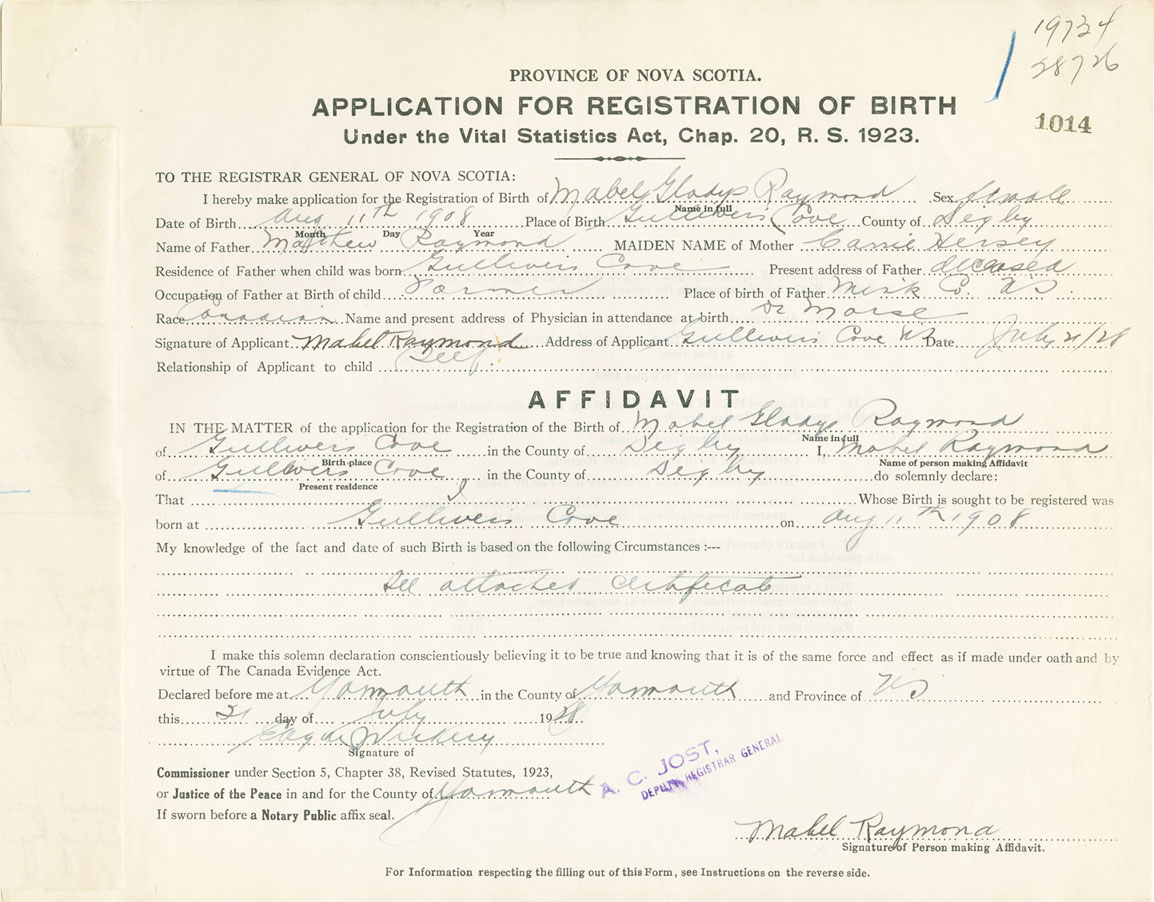 19734
28726
1014
PROVINCE OF NOVA SCOTIA.
APPLICATION FOR REGISTRATION OF BIRTH
Under the Vital Statistics Act, Chap. 20, R. S. 1923.
TO THE REGISTRAR GENERAL OF NOVA SCOTIA:
I hereby make application for the Registration of Birth of Mabel Gladys Raymond Sex female
Name in full
Date of Birth Aug 11th 1908 Place of Birth Gullivers Cove County of Digby
Month Day Year
Name of Father Matthew Raymond MAIDEN NAME of Mother Carrie Hersey
Residence of Father when child was born Gullivers Cove Present address of Father deceased
Occupation of Father at Birth of child Farmer Place of birth of Father Co. NS
Race Canadian Name and present address of Physician in attendance at birth Dr Morse
Signature of Applicant Mabel Raymond Address of Applicant Gullivers Cove NS Date July 21/28
Relationship of Applicant to child Self
AFFIDAVIT
IN THE MATTER of the application for the Registration of the Birth of Mabel Gladys Raymond
Name in full
of Gullivers Cove in the County of Digby I, Mabel Raymond
Birth-place Name of person making Affidavit
of Gullivers Cove in the County of Digby do solemnly declare:
Present residence
That I Whose Birth is sought to be registered was
born at Gullivers Cove on Aug 11th 1908
My knowledge of the fact and date of such Birth is based on the following Circumstances :---
See attached certificate
I make this solemn declaration conscientiously believing it to be true and knowing that it is of the same force and effect as if made under oath and by
virtue of The Canada Evidence Act.
Declared before me at Yarmouth in the County of Yarmouth and Province of NS
this 21 day of July 1928
Signature of
Commissioner under Section 5, Chapter 38, Revised Statutes, 1923,
or Justice of the Peace in and for the County of Yarmouth
A. C. JOST,
DEPUTY REGISTRAR GENERAL
If sworn before a Notary Public affix seal.
Mabel Raymond
Signature of Person making Affidavit.
For Information respecting the filling out of this Form, see Instructions on the reverse side.